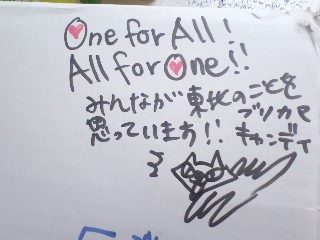 One for All!
All for One!!
みんなが東北のことを
思っています!!
プリカマ
キャンディ